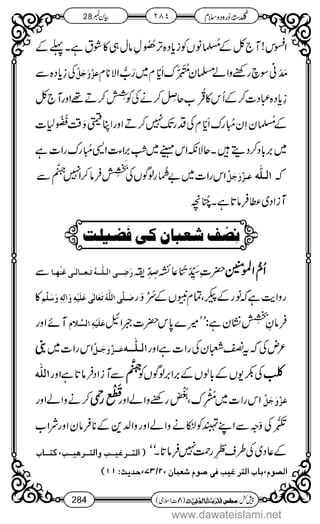 گلدستہ دُرود و سلام ٢٨٤ بیان نمبر 28
افسوس! آج کل کے مُسلمانوں کو زیادہ تر حُصُولِ مال ہی کا شوق ہے۔ پہلے کے
مَدَنی سوچ رکھنے والے مسلمان مُتَبَرَّک اَیّام میں ربُّ الانام عَزَّوَجَلَّ کی زیادہ سے
زیادہ عبادت کرکے اُس کا قُرب حاصل کرنے کی کوشش کرتے تھے اور آج کل
کے مُسلمان اِن مُبارک اَیّام کی قدر تک نہیں کرتے اور اپنا قیمتی وقت فضولیات
میں برباد کر دیتے ہیں۔ حالانکہ اس مہینے میں شبِ براءت ایسی مُبارک رات ہے
کہ اللہ عَزَّوَجَلَّ اس رات میں بے شُمار لوگوں کی بخشش فرما کر انہیں جہنم سے
آزادی عطا فرماتا ہے۔ چُنانچہ
نصف شعبان کی فضیلت
اُمُّ المؤمنین حضرتِ سَیِّدَتُنا عائشہ صِدّیقہ رَضِیَ اللہُ تَعَالٰی عَنْہَا سے
روایت ہے کہ نور کے پیکر، تمام نبیوں کے سَروَر صَلَّی اللہُ تَعَالٰی عَلَیْہِ وَاٰلِہٖ وَسَلَّمَ کا
فرمانِ بخشش نشان ہے: ’’میرے پاس حضرتِ جبرائیل عَلَیْہِ السَّلَام آئے اور
عرض کی کہ یہ نصف شعبان کی رات ہے اور اللہ عَزَّوَجَلَّ اس رات میں بنی
کلب کی بکریوں کے بالوں کے برابر لوگوں کو جہنم سے آزاد فرماتا ہے اور اللہ
عَزَّوَجَلَّ اس رات میں مُشرک، بُغض رکھنے والے اور قطعِ رحمی کرنے والے اور
تَکَبُّر کی وجہ سے اپنے تہبند کو لٹکانے والے اور والدین کے نافرمان اور شراب
کے عادی کی طرف نظرِ رحمت نہیں فرماتا۔‘‘ (الترغیب والترھیب، کتاب
الصوم، باب الترغیب فی صوم شعبان ٢/٧٣، حدیث: ١١)
284
www.dawateislami.net